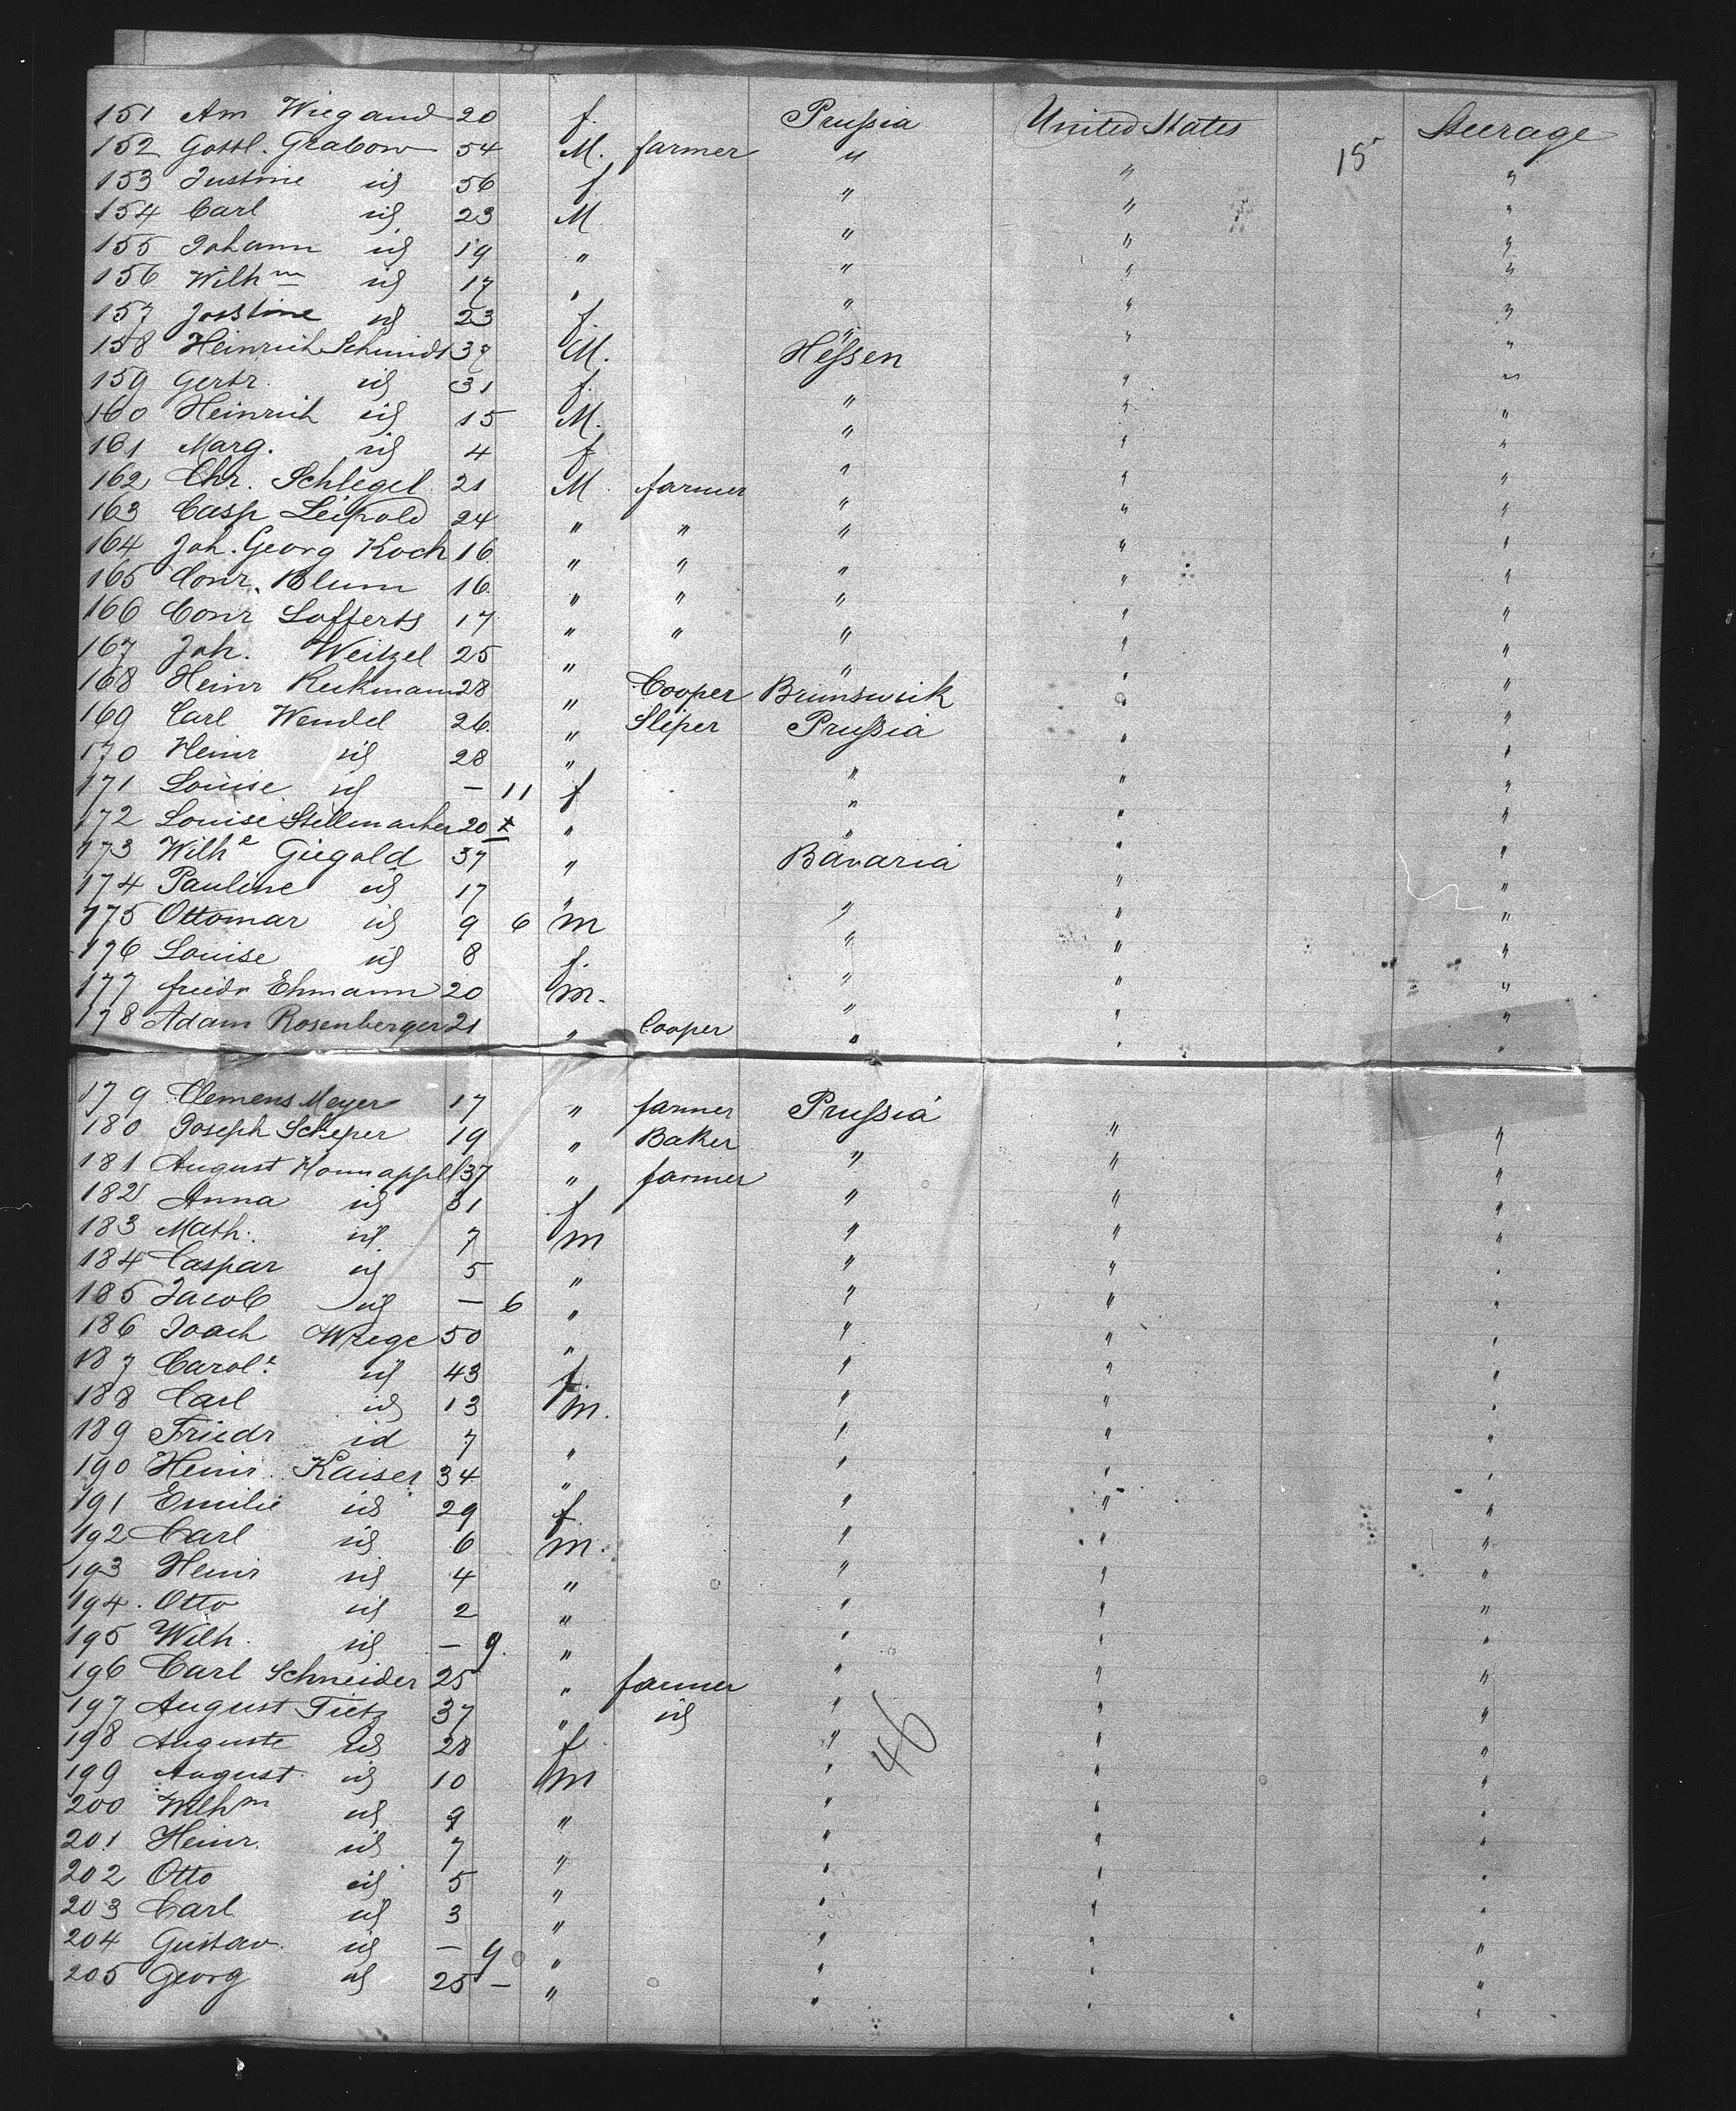 151 Am Wiegand 20 f. Prussia United States Steerage
152 Gottl. Grabow 54 M. farmer " " 15 "
153 Justine id 56 f " " "
154 Carl id 23 M. " " "
155 Johann id 19 " " " "
156 Wilhm id 17 " " " "
157 Josstine id 23 f. " " "
158 Heinrich Schmidt 37 M. Hessen " "
159 Gertr. id 31 f. " " "
160 Heinrich id 15 M. " " "
161 Marg. id 4 f " " "
162 Chr. Schlegel 21 M. farmer " " "
163 Casp Leipold 24 " " " " "
164 Joh. Georg Koch 16 " " " " "
165 Conr. Blum 16 " " " " "
166 Conr Lofferts 17 " " " " "
167 Joh. Weitzel 25 " " " "
168 Heinr Reckmann 28 " Cooper Brunswick " "
169 Carl Wendel 26 " Sleper Prussia " "
170 Heinr id 28 " " " "
171 Louise id — 11 f " " "
172 Louise Stellmacher 20 " " " "
173 Wilhe Giegold 37 " Bavaria " "
174 Pauline id 17 " " " "
175 Ottomar id 9 6 m " " "
176 Louise id 8 f. " " "
177 friedr Ehmann 20 m. " " "
178 Adam Rosenberger 21 " Cooper " " "
179 Clemens Meyer 17 " farmer Prussia " "
180 Joseph Scheper 19 " Baker " " "
181 August Honnappel 37 " farmer " " "
182 Anna id 31 f " " "
183 Math. id 7 m " " "
184 Caspar id 5 " " " "
185 Jacob id — 6 " " " "
186 Joach Wrege 50 " " " "
187 Carole id 43 f. " " "
188 Carl id 13 m. " " "
189 Friedr id 7 " " " "
190 Heinr. Kaiser 34 " " " "
191 Emilie id 29 f. " " "
192 Carl id 6 m. " " "
193 Heinr id 4 " " " "
194. Otto id 2 " " " "
195 Wilh. id — 9. " " " "
196 Carl Schneider 25 " farmer " " "
197 August Tietz 37 " id " " "
198 Auguste id 28 f " " "
199 August id 10 m " " "
46
200 Wilhm id 9 " " " "
201 Heinr. id 7 " " " "
202 Otto id 5 " " " "
203 Carl id 3 " " " "
204 Gustav. id — 9 " " " "
205 Georg id 25 — " " " "